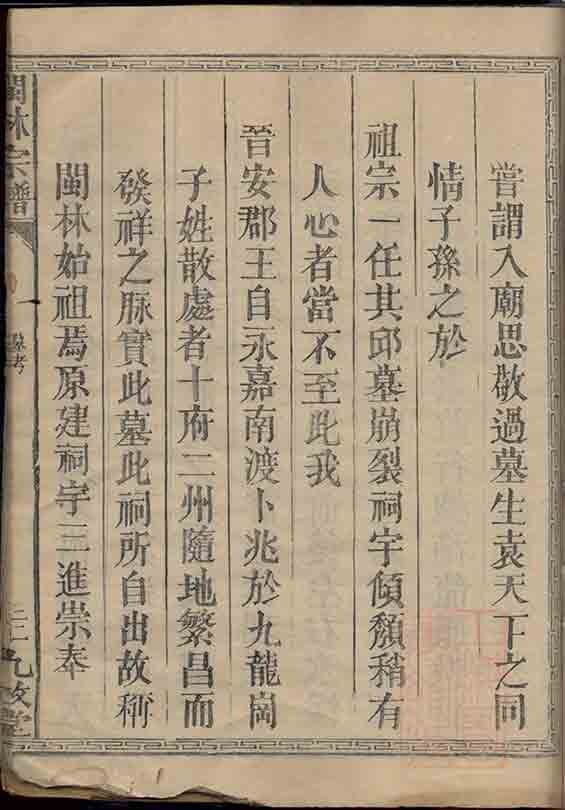 嘗謂入廟思敬過墓生哀天下之同
情子孫之於
祖宗一任其邱墓崩裂祠宇傾頹稍有
人心者當不至此我
晉安郡王自永嘉南渡卜兆於九龍崗
子姓散處者十府二州隨地繁昌而
發祥之脉實此墓此祠所自出故稱
閩林始祖焉原建祠宇三進崇奉
閩林宗譜